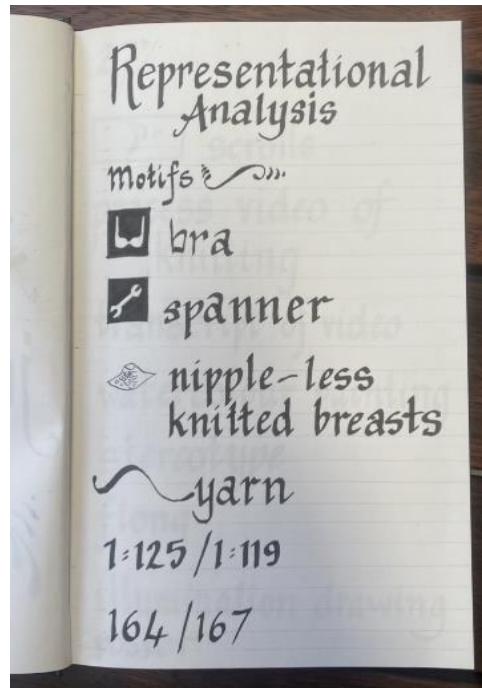 Representational
Analysis
Motifs
bra
spanner
nipple-less
knitted breasts
yarn
1:125/1:119
164/167